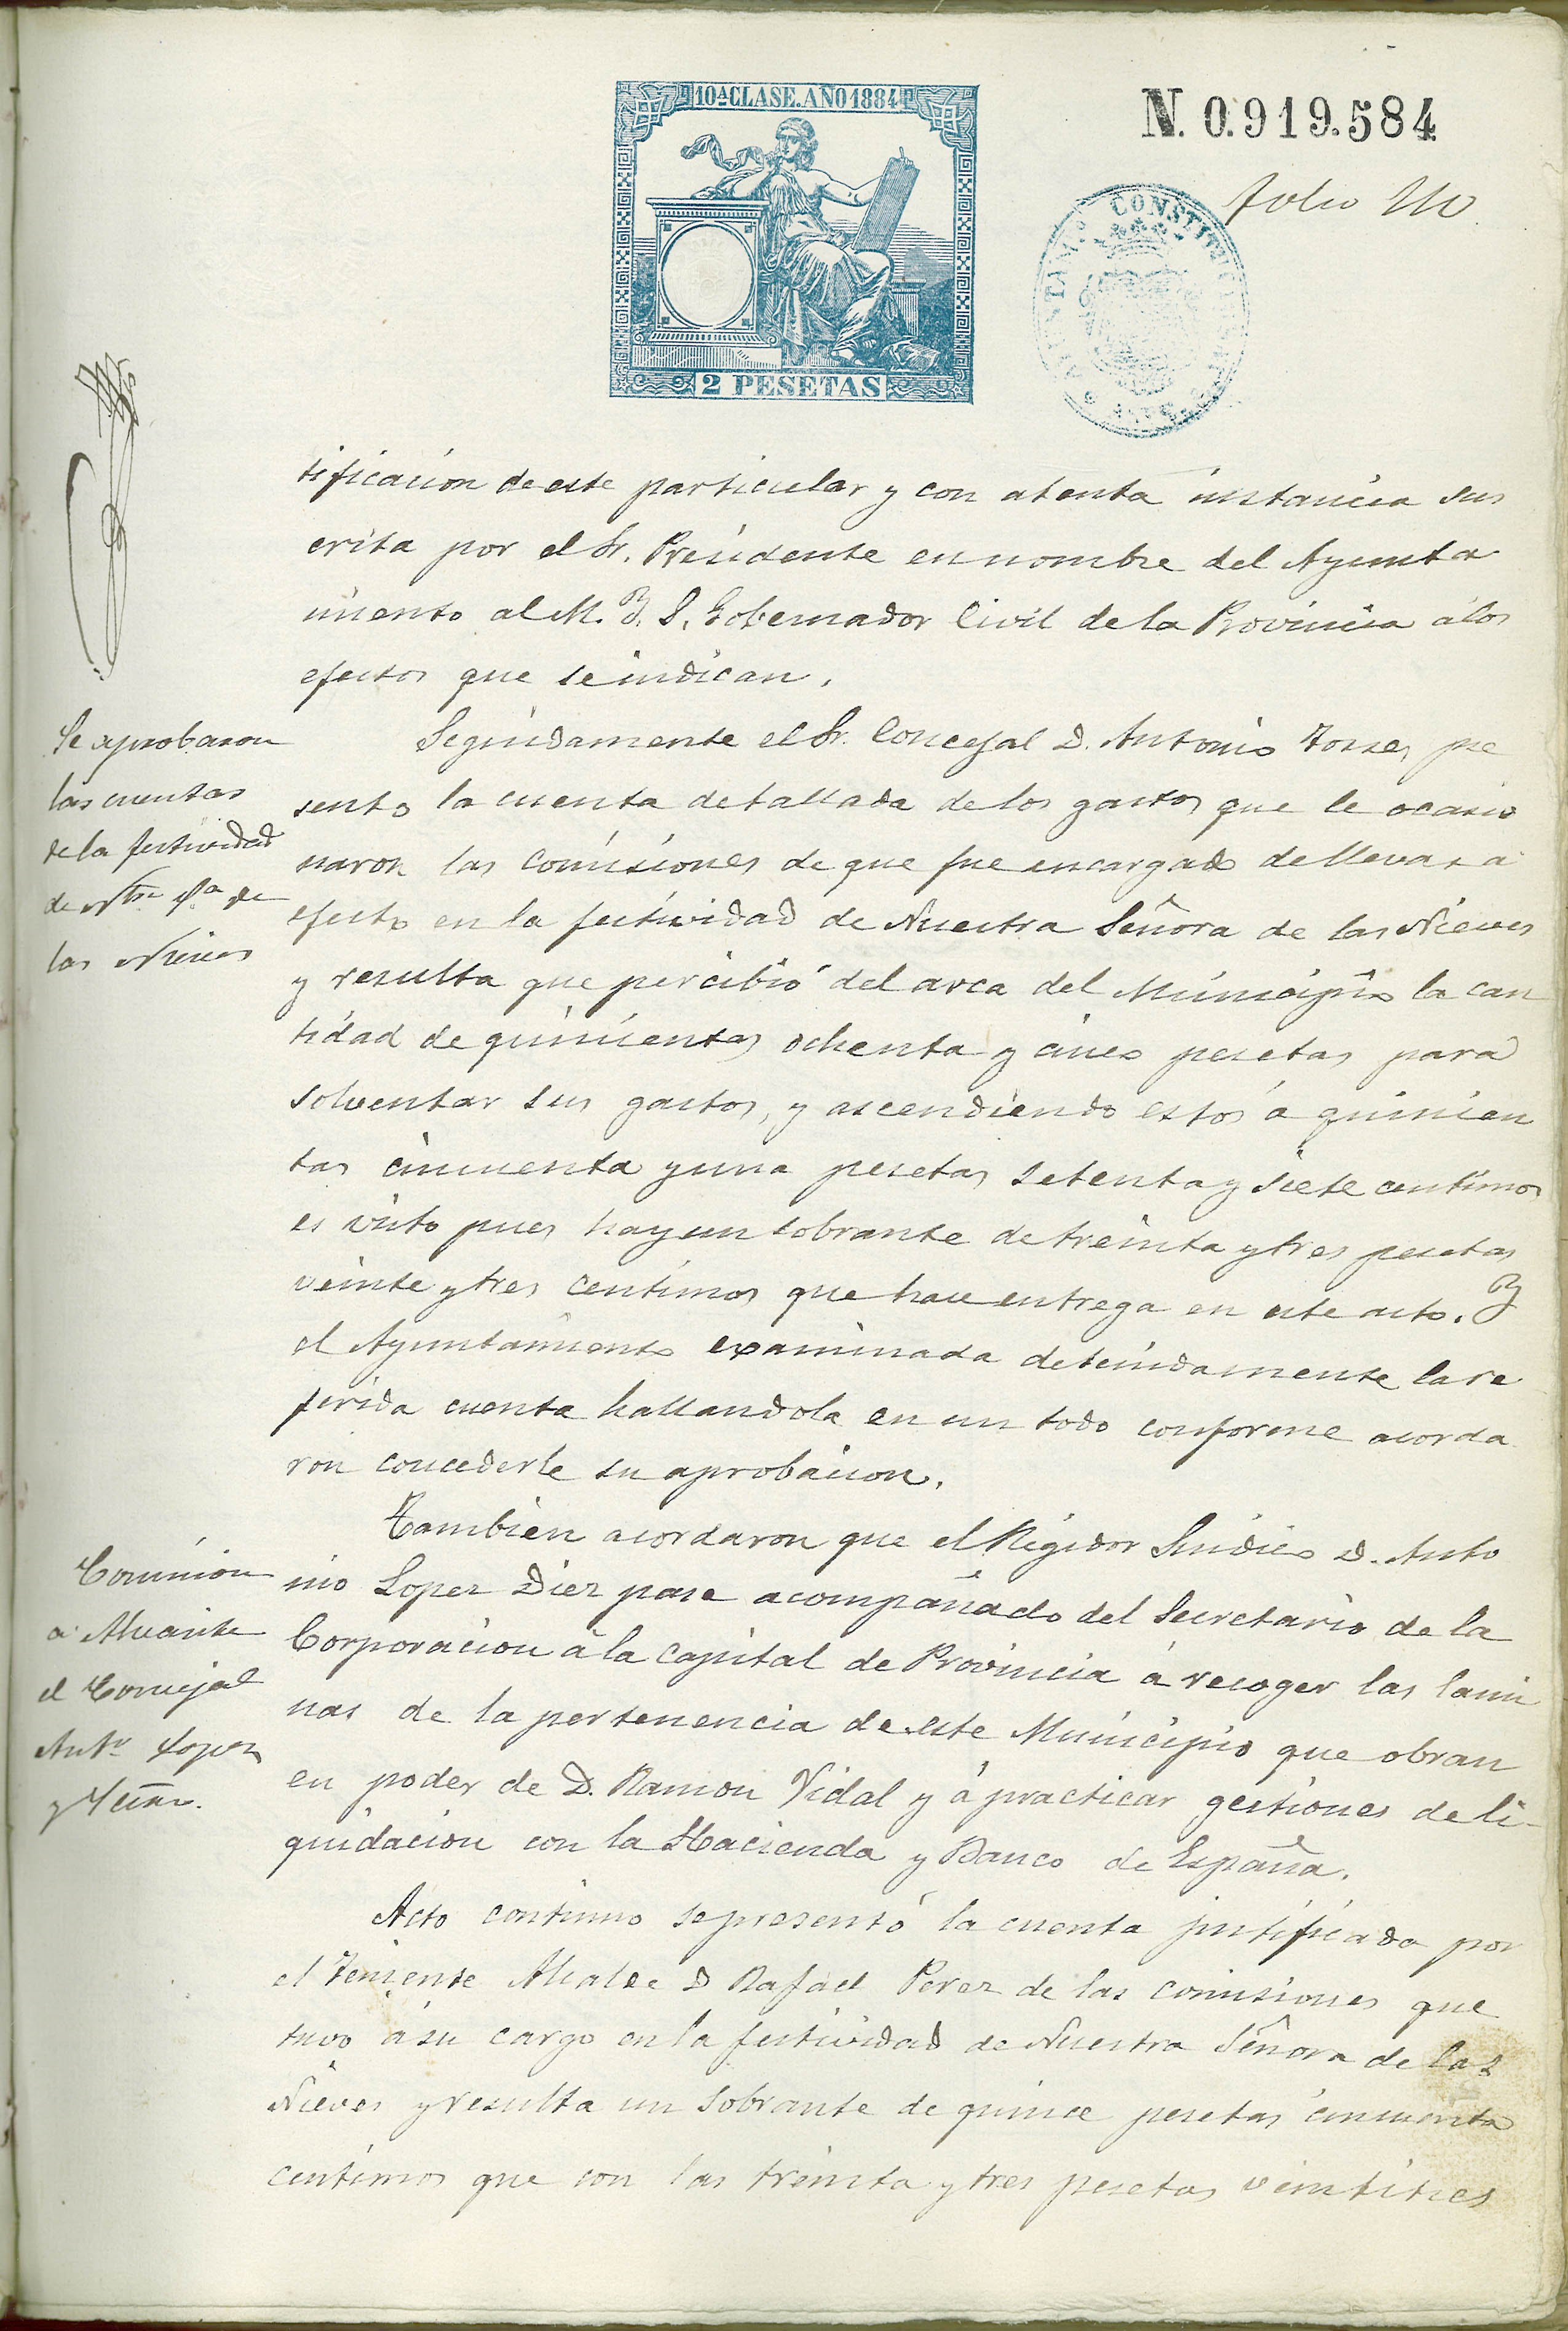 10ª CLASE. AÑO 1884
2 PESETAS
N. 0.919.584
CONSTITUCIONAL
folio
tificacion de este particular y con atenta instancia sus
crita por el Sr. Presidente en nombre del Ayunta
miento al M. Y. S. Gobernador Civil de la Provincia á los
efectos que se indican.
Se aprobaron
las cuentas
de la festividad
de Ntra Sra de
las Nieves
Seguidamente el Sr. Concejal D. Antonio Torres pre
sento la cuenta detallada de los gastos que le ocasio
naron las comisiones de que fue encargado de llevar a
efecto en la festividad de Nuestra Señora de las Nieves
y resulta que percibió del arca del Municipio la can
tidad de quinientas ochenta y cinco pesetas para
solventar sus gastos, y ascendiendo estos á quinien
tas cincuenta y una pesetas setenta y siete centimos
es visto pues hay un sobrante de treinta y tres pesetas
veinte y tres centimos que hace entrega en este acto. Y
el Ayuntamiento examinada detenidamente la re
ferida cuenta hallandola en un todo conforme acorda
ron concederle su aprobacion.
Comision
a Alicante
el Concejal
Antº Lopez
y Secrio.
Tambien acordaron que el Regidor Sindico D. Anto
nio Lopez Diez pase acompañado del Secretario de la
Corporacion á la Capital de Provincia á recoger las lami
nas de la pertenencia de este Municipio que obran
en poder de D. Ramon Vidal y á practicar gestiones de li-
quidacion con la Hacienda y Banco de España.
Acto continuo se presentó la cuenta justificada por
el Teniente Alcalde D Rafael Perez de las comisiones que
tuvo á su cargo en la festividad de Nuestra Señora de las
Nieves y resulta un sobrante de quince pesetas cincuenta
centimos que con las treinta y tres pesetas veintitres